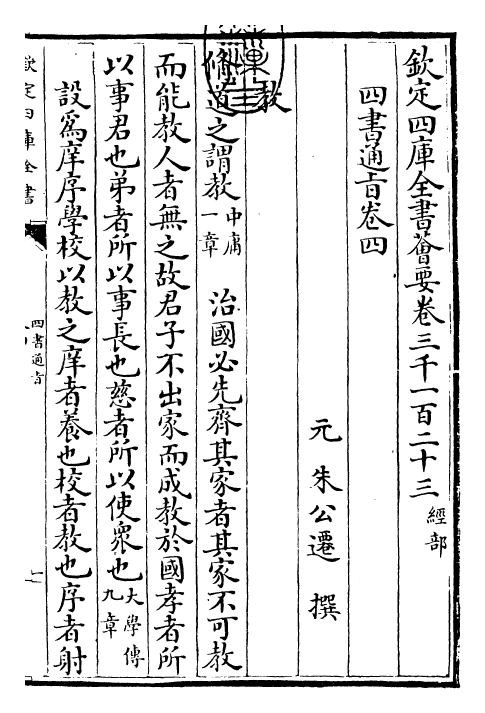 欽定四庫全書薈要卷三千一百二十三 經部
四書通旨卷四
元 朱公遷 撰
教
脩道之謂教 中庸一章 治國必先齊其家者其家不可教
而能教人者無之故君子不出家而成教於國孝者所
以事君也弟者所以事長也慈者所以使衆也 大學傳九章
設為庠序學校以教之庠者養也校者教也序者射
欽定四庫全書
四書通旨